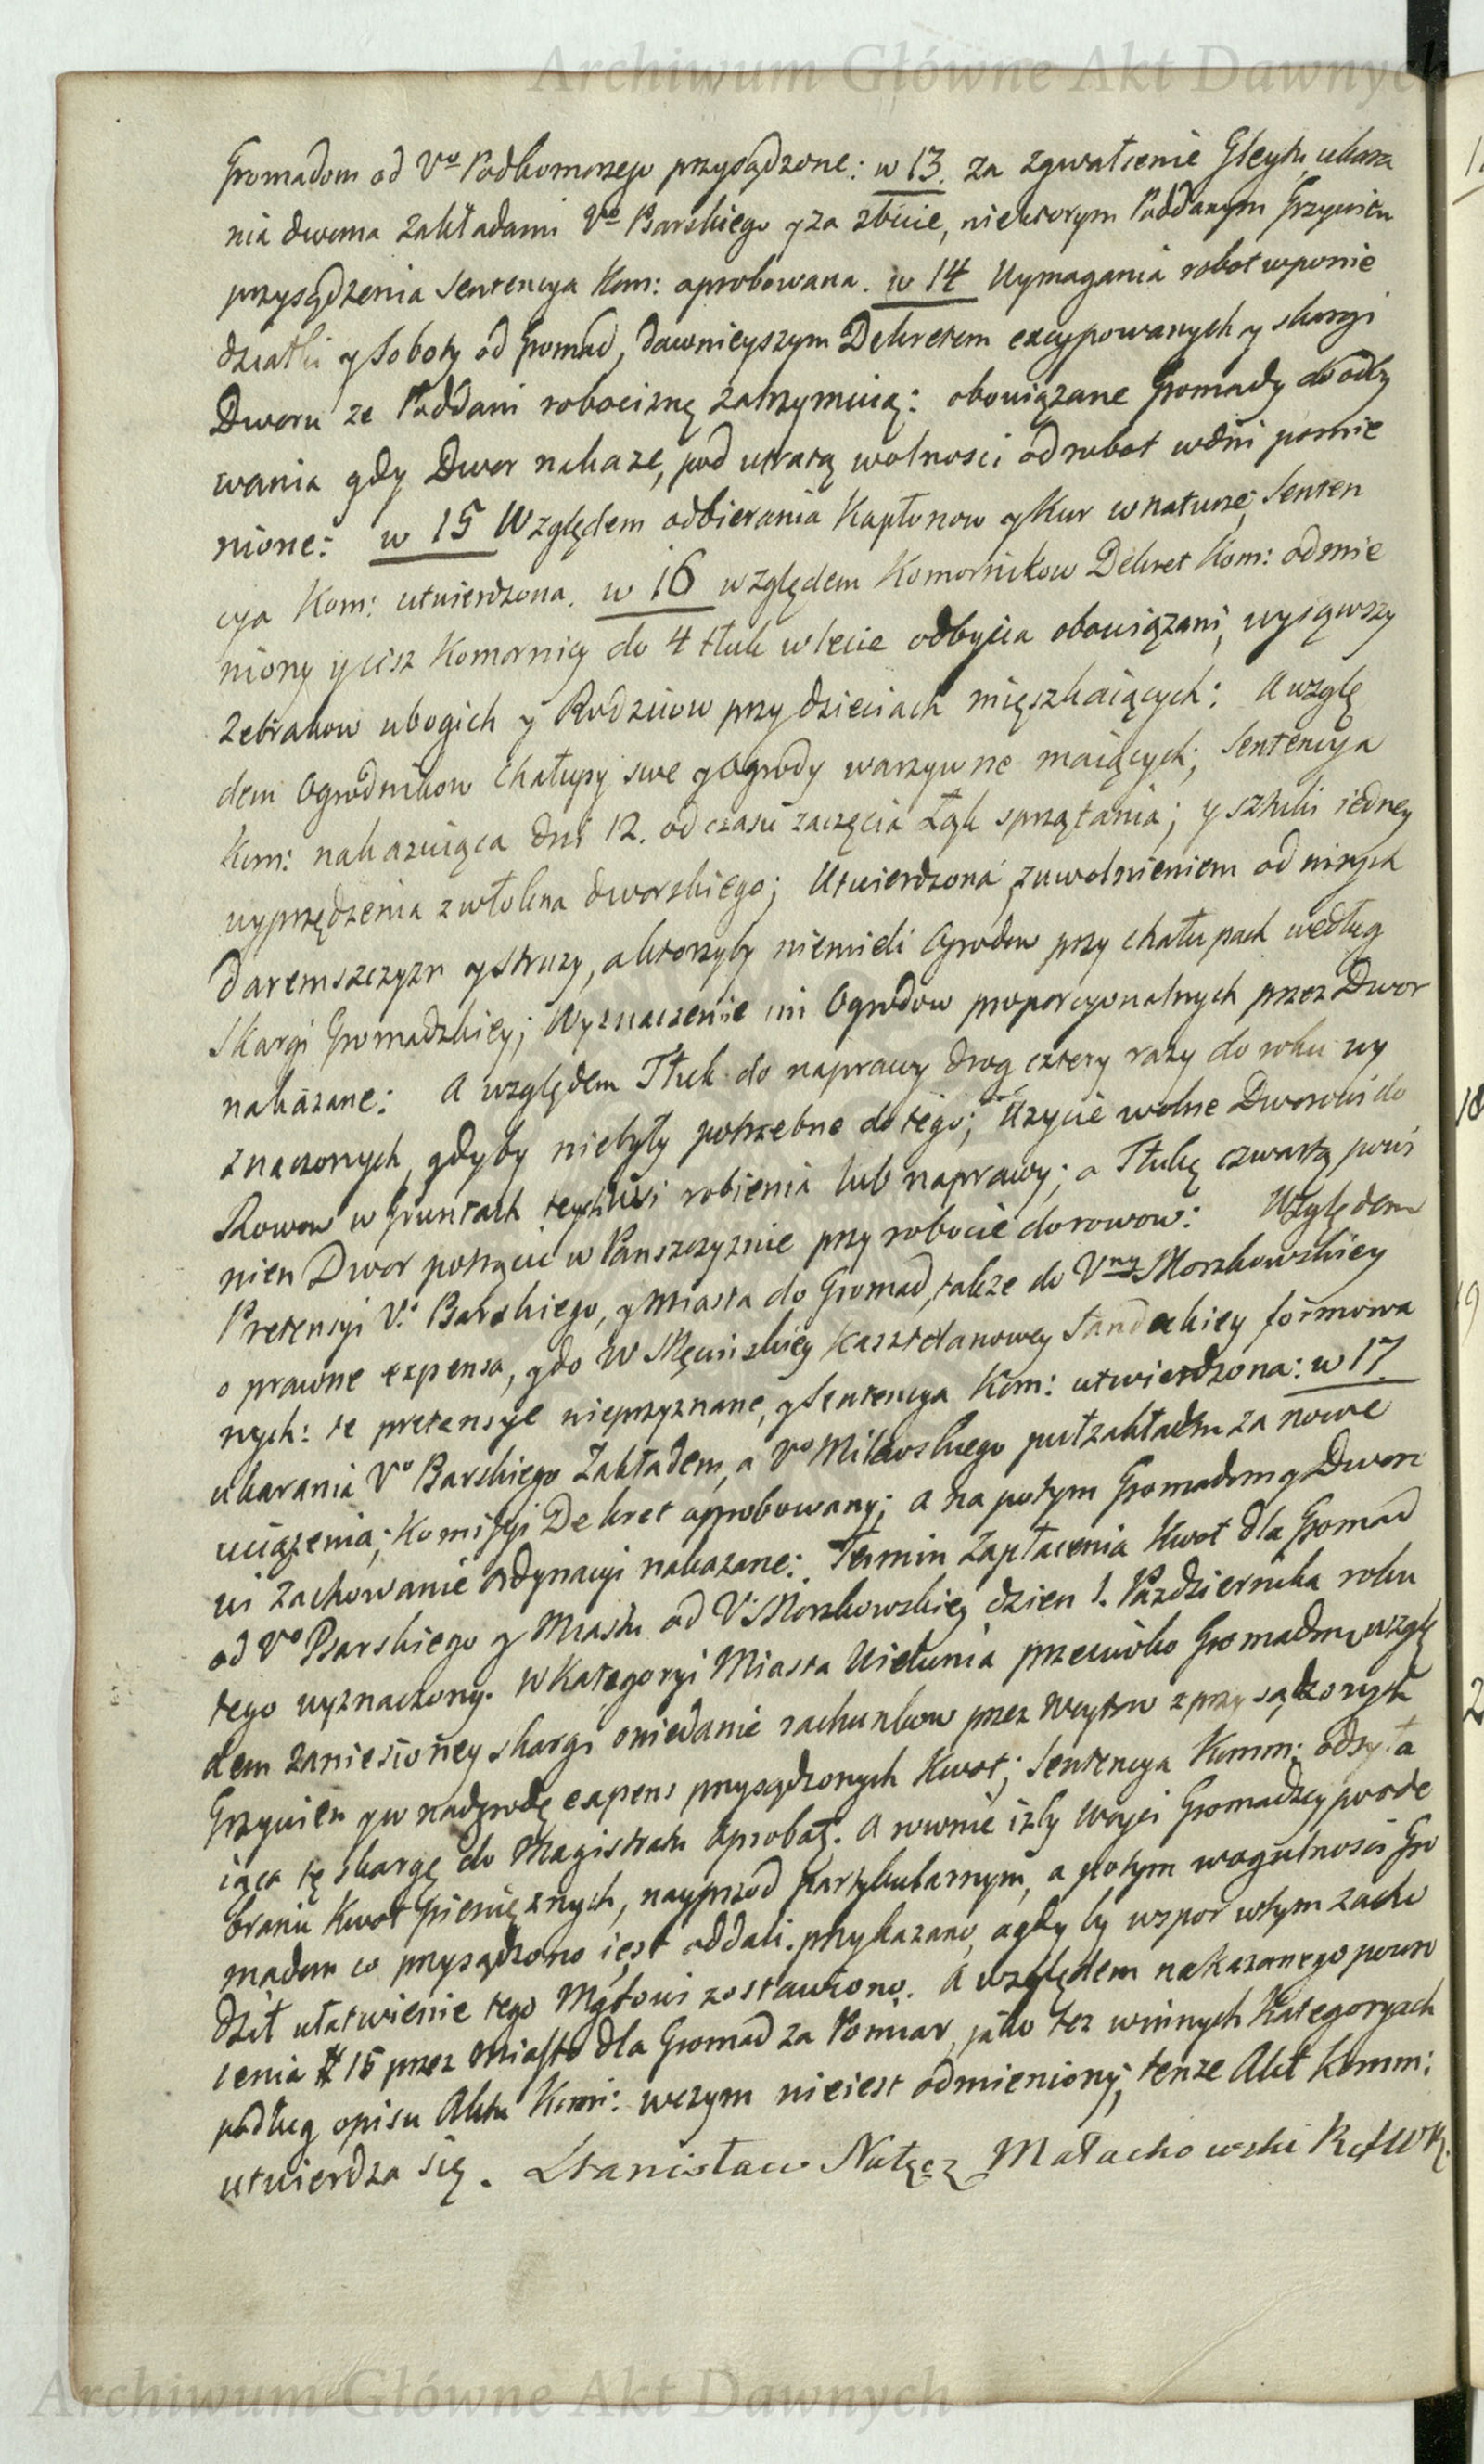 Archiwum Główne Akt Dawnych
Gromadom od Vo Podkomorzego przysądzone: w 13. za zgwałcenie Gleytu, ukara
nia dwoma zakładami Vo Barskiego y za zbicie, niektorym Poddanym Grzywien
przysądzenia Sentencya Kom: aprobowana. w 14 Wymagania robot w ponie
działki y Soboty od Gromad, dawnieyszym Dekretem excypowanych y skargi
Dworu ze Poddani robociznę zatrzymuią: obowiązane Gromady do odby
wania gdy Dwor nakaze, pod utratą wolnosci od robot w dni pomie
nione: w 15 Względem odbierania Kapłonow y Kur w naturze, Senten
cya Kom: utwierdzona. w 16 względem Komornikow Dekret Kom: odmie
niony y ciz Komornicy do 4 tłuk w lecie odbycia obowiązani, wyiąwszy
Zebrakow ubogich y Rodzicow przy dzieciach mięszkaiących: A wzglę
dem Ogrodnikow Chałupy swe y Ogrody warzywne maiących, Sentencya
Kom: nakazuiąca dni 12. od czasu zaczęcia Łąk sprzątania; y sztuki iedney
wyprzędzenia z włokna dworskiego; Utwierdzona, z uwolnieniem od innych
daremszczyzn y struzy, a ktorzyby niemieli Ogrodow przy chałupach według
Skargi Gromadzkiey; Wyznaczenie im Ogrodow proporcyonalnych przez Dwor
nakazane: A względem Tłuk do naprawy drog cztery razy do roku wy
znaczonych, gdyby niebyły potrzebne do tego; Uzycie wolne Dworowi do
Rowow w Gruntach teyze wsi robienia lub naprawy; a Tłukę czwartą powi
nien Dwor potrącic w Panszczyznie przy robocie dorowow: Względem
Pretensyi Vo Barskiego, y Miasta do Gromad, takze do Vney Morzkowskiey
o prawne expensa, y do W Męcinskiey Kasztelanowey Sandeckiey formowa
nych: te pretensye nieprzyznane, y Sentencya Kom: utwierdzona: w 17.
ukarania Vo Barskiego Zakładem, a Vo Milewskiego puł zakładem za nowe
uciązenia; Komissyi Dekret approbowany; a na potym Gromadom y Dworo
wi zachowanie Ordynacyi nakazane: Termin zapłacenia Kwot dla Gromad
od Vo Barskiego y Miastu od V. Morzkowskiey dzien 1. Pazdziernika roku
tego wyznaczony. W Kategoryi Miasta Wielunia przeciwko Gromadom, wzglę
dem zaniesioney skargi oniedanie rachunkow przez Woytow z przysądzonych
Grzywien y w nadgrodę expens przysądzonych Kwot; Sentencya Komm: odsyła
iąca tę skargę do Magistratu aprobat. A rownie izby Woyci Gromadzcy po ode
braniu Kwot pieniężnych, nayprzod partykularnym, a potym w ogulnosci Gro
madom co przysądzono iest oddali, przykazano, a gdyby wspor w tym zacho
dził ułatwienie tego Mgtowi zostawiono. A względem nakazanego powro
cenia # 16 przez Miasto dla Gromad za Pomiar, jako tez w innych Kategoryach
podług opisu Aktu Kom: w czym nieiest odmieniony, tenze Akt Komm:
utwierdza się. Stanisław Nałęcz Małachowski RefWK.
Archiwum Główne Akt Dawnych